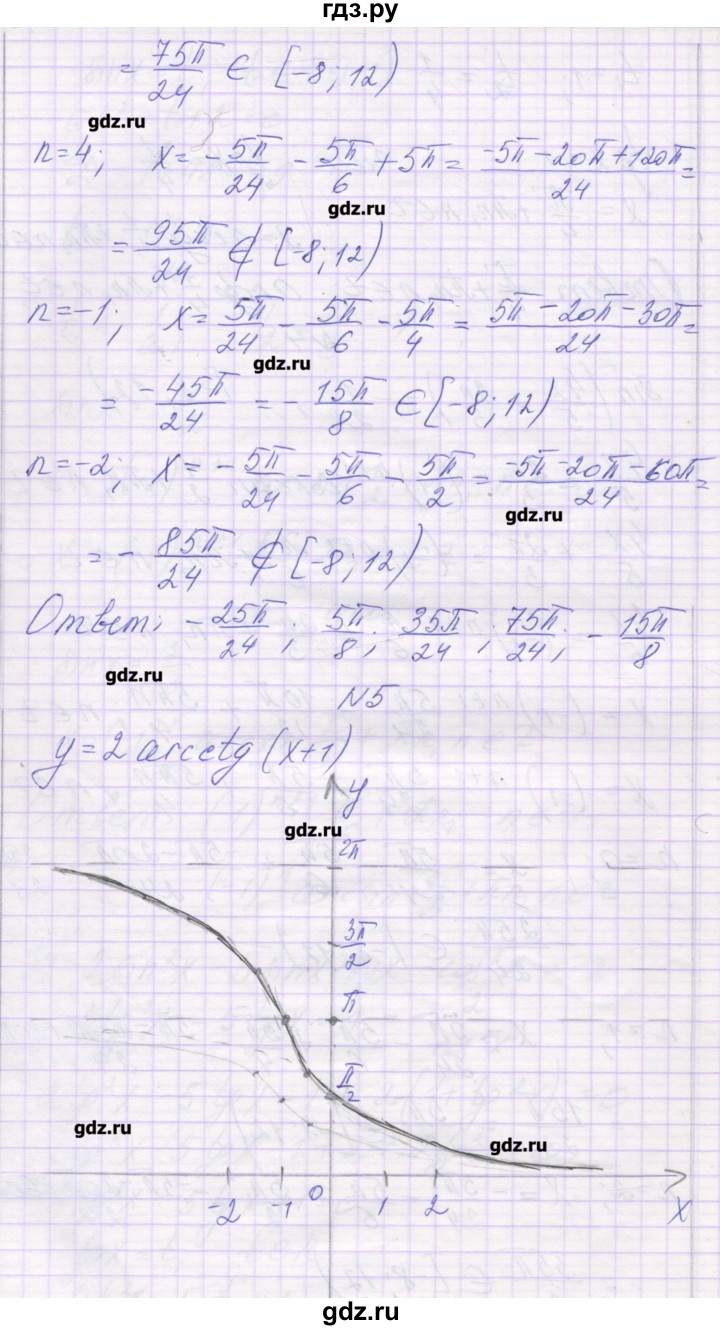 гдз.ру
= 75π/24 ∈ [-8; 12)
gdz.ru
n=4; x= -5π/24 - 5π/6 + 5π = (-5π-20π+120π)/24 =
gdz.ru
= 95π/24 ∉ [-8; 12)
n=-1; x= 5π/24 - 5π/6 - 5π/4 = (5π-20π-30π)/24 =
gdz.ru
= -45π/24 = -15π/8 ∈ [-8; 12)
n=-2; x= -5π/24 - 5π/6 - 5π/2 = (-5π-20π-60π)/24 =
gdz.ru
= -85π/24 ∉ [-8; 12)
Ответ: -25π/24; 5π/8; 35π/24; 75π/24; -15π/8
gdz.ru
N5
y=2arcctg(x+1)
y
gdz.ru
2π
3π/2
π
π/2
gdz.ru
gdz.ru
-2 -1 0 1 2 x
gdz.ru